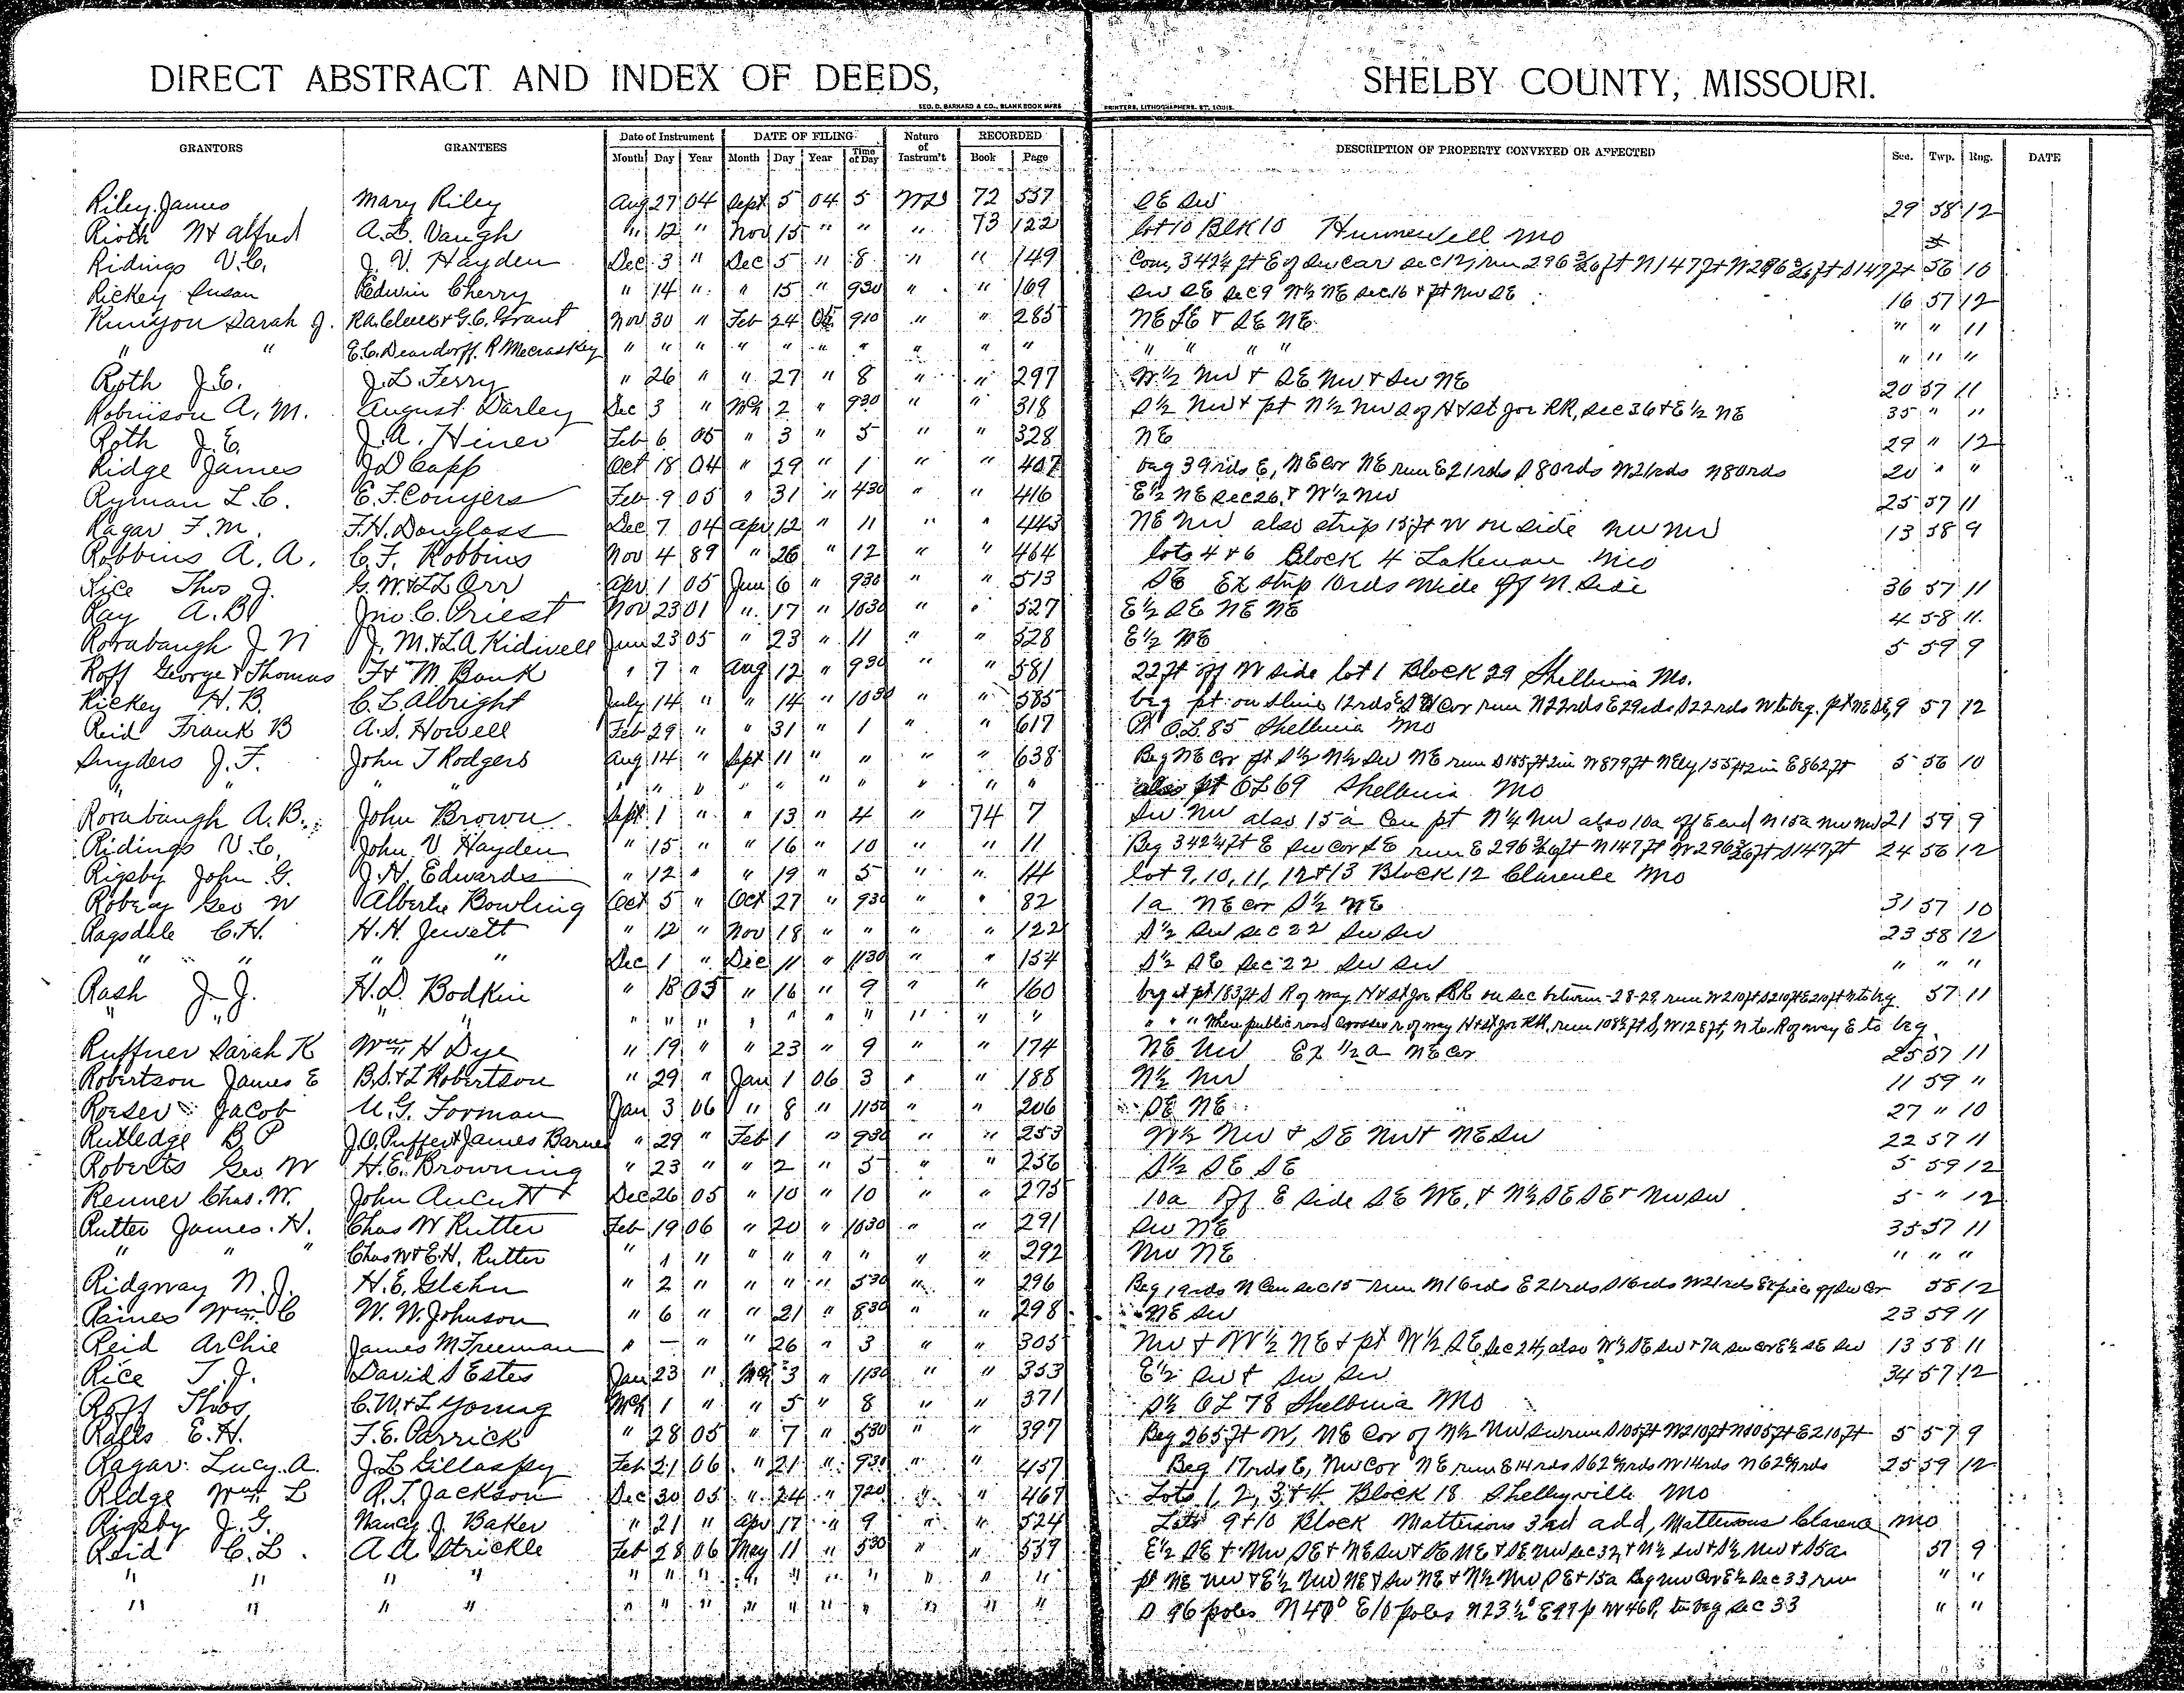 DIRECT ABSTRACT AND INDEX OF DEEDS, SHELBY COUNTY, MISSOURI.
GEO. D. BARNARD & CO., BLANK BOOK MFRS PRINTERS, LITHOGRAPHERS, ST. LOUIS.
GRANTORS GRANTEES Date of Instrument DATE OF FILING Nature of Instrum't RECORDED DESCRIPTION OF PROPERTY CONVEYED OR AFFECTED Sec. Twp. Rng. DATE
Month Day Year Month Day Year Time of Day Book Page
Riley James Mary Riley Aug 27 04 Sept 5 04 5 WD 72 557 SE SW 29 58 12
Rioth W & Alfred A. L. Vaugh " 12 " Nov 15 " " " 73 122 lot 10 Blk 10 Hunnewell Mo
Ridings V.C. J. V. Hayden Dec 3 " Dec 5 " 8 " " 149 56 10
Rickey Susan Edwin Cherry " 14 " " 15 " 930 " " 169 SW SE Sec 9 N½ NE Sec 16 & pt NW SE 16 57 12
Runyon Sarah J. & G.C. Grant Nov 30 " Feb 24 05 910 " " 285 NE SE & SE NE " " 11
" " E.C. Deardorff, R Mecraskey " " " " " " " " " " " " " " " " "
Roth J.E. J.L. Terry " 26 " " 27 " 8 " " 297 W½ NW & SE NW & SW NE 20 57 11
Robinson A. M. August Darley Dec 3 " Mch 2 " 930 " " 318 S½ NW & pt N½ NW S of H & St Joe RR, Sec 36 & E½ NE 35 " "
Roth J.E. J.A. Hiner Feb 6 05 " 3 " 5 " " 328 NE 29 " 12
Ridge James J D Capp Oct 18 04 " 29 " 1 " " 407 beg 39 rds E, NE cor NE run E 21 rds S 80 rds W 21 rds N 80 rds 20 " "
Ryman L. C. E. F. Conyers Feb 9 05 " 31 " 430 " " 416 E½ NE Sec 26 & W½ NW 25 57 11
Ragar F. M. F.H. Douglass Dec 7 04 Apr 12 " 11 " " 443 NE NW also strip 15 ft W on side NW NW 13 58 9
Robbins A. A. C. F. Robbins Nov 4 89 " 26 " 12 " " 464 lots 4 & 6 Block 4 Lakenan Mo
Rice Thos J. G. W. & L L Orr Apr 1 05 Jun 6 " 930 " " 513 SE Ex strip 10 rds wide off N. Side 36 57 11
Ray A. B. Jno. C. Priest Nov 23 01 " 17 " 1030 " " 527 E½ SE NE NE 4 58 11
Rorabaugh J N J. M. & L A Kidwell Jun 23 05 " 23 " 11 " " 528 E½ NE 5 59 9
Roff George & Thomas F & M Bank " 7 " Aug 12 " 930 " " 581 22 ft off W side lot 1 Block 29 Shelbina Mo.
Rickey H. B. C. L. Albright July 14 " " 14 " 1030 " " 585 beg pt on S line 12 rds cor run N 22 rds E 29 rds S 22 rds W to beg. pt NE SE 9 57 12
Reid Frank B A. S. Howell Feb 29 " " 31 " 1 " " 617 Pt O L 85 Shelbina Mo
Snyders J. F. John T Rodgers Aug 14 " Sept 11 " " " " 638 Beg NE cor pt S½ N½ SW NE run S 155 ft 2 in W 879 ft NEly 155 ft 2 in E 862 ft 5 56 10
" " " " " " " " " " " " " also pt O L 69 Shelbina Mo
Rorabaugh A. B. John Brown Sept 1 " " 13 " 4 " 74 7 SW NW also 15 a Cen pt N½ NW also 10a off E end N 15a NW NW 21 59 9
Ridings V. C. John V Hayden " 15 " " 16 " 10 " " 11 24 56 12
Rigsby John G. J. H. Edwards " 12 " " 19 " 5 " " 14 lot 9, 10, 11, 12 & 13 Block 12 Clarence Mo
Robey Geo W Alberta Bowling Oct 5 " Oct 27 " 930 " " 82 1a NE cor S½ NE 31 57 10
Ragsdale C. H. H. H. Jewett " 12 " Nov 18 " " " " 122 S½ SW Sec 22 SW SW 23 58 12
" " " " " Dec 1 " Dec 11 " 1130 " " 154 S½ SE Sec 22 SW SW " " "
Rash J. J. H. D. Bodkin " 18 05 " 16 " 9 " " 160 beg at pt 183 ft S R of way H & St Joe RR on sec between 28-29 run W 210 ft S 210 ft E 210 ft N to beg 57 11
" " " " " " " " " " " " " " " " Where public road crosses R of way H & St Joe RR, run 108½ ft S, W 128 ft, N to R of way E to beg
Ruffner Sarah K Wm H Dye " 19 " " 23 " 9 " " 174 NE NW Ex ½ a NE cor 25 57 11
Robertson James E B. S. & L Robertson " 29 " Jan 1 06 3 " " 188 N½ NW 11 59 "
Roeser Jacob U. G. Forman Jan 3 06 " 8 " 1150 " " 206 SE NE 27 " 10
Rutledge B P J. O. Puffer & James Barnes " 29 " Feb 1 " 930 " " 253 W½ NW & SE NW & NE SW 22 57 11
Roberts Geo W H. E. Browning " 23 " " 2 " 5 " " 256 S½ SE SE 5 59 12
Renner Chas. W. John Aucutt Dec 26 05 " 10 " 10 " " 275 10a off E side SE NE, & N½ SE SE & NW SW 5 " 12
Rutter James. H. Chas W Rutter Feb 19 06 " 20 " 1030 " " 291 SW NE 35 57 11
" " " Chas W & E. H. Rutter " 1 " " " " " " " 292 NW NE " " "
Ridgway N. J. H. E. Glahn " 2 " " " " 530 " " 296 Beg 19 rds N Cen Sec 15 run N 16 rds E 21 rds S 16 rds W 21 rds Ex piece off SW Cor 58 12
Raines Wm C W. W. Johnson " 6 " " 21 " 830 " " 298 NE SW 23 59 11
Reid Archie James M Freeman " — " " 26 " 3 " " 305 NW & W½ NE & pt W½ SE Sec 24, also W½ SE SW & 7a SW cor E½ SE SW 13 58 11
Rice T. J. David S Estes Jan 23 " Mch 3 " 1130 " " 353 E½ SW & SW SW 34 57 12
Roff Thos C. W. & L Young Mch 1 " " 5 " 8 " " 371 S½ O L 78 Shelbina Mo
Ralls E. H. F. E. Parrick " 28 05 " 7 " 530 " " 397 Beg 265 ft W, NE Cor of N½ NW SW run S 105 ft W 210 ft N 105 ft E 210 ft 5 57 9
Ragar Lucy A. J. L Gillaspy Feb 21 06 " 21 " 930 " " 457 Beg 17 rds E, NW cor NE run E 14 rds S 62 rds W 14 rds N 62 rds 25 59 12
Ridge Wm L R. T. Jackson Dec 30 05 " 24 " 720 " " 467 Lots 1, 2, 3 & 4 Block 18 Shelbyville Mo
Rigsby J. G. Nancy J Baker " 21 " Apr 17 " 9 " " 524 Lots 9 & 10 Block Mattersons 3rd add, Clarence Mo
Reid C. L. A A Strickle Feb 28 06 May 11 " 530 " " 539 E½ SE & NW SE & NE SW & SE NE & SE NW Sec 32, & N½ SW & S½ NW & S 5a 57 9
" " " " " " " " " " " " " " pt NE NW & E½ NW NE & SW NE & N½ NW SE & 15a Beg NW cor E½ Sec 33 run " "
" " " " " " " " " " " " " " S 96 poles N 47° E 10 poles N 23½° E 97 p W 46 P. to beg Sec 33 " "